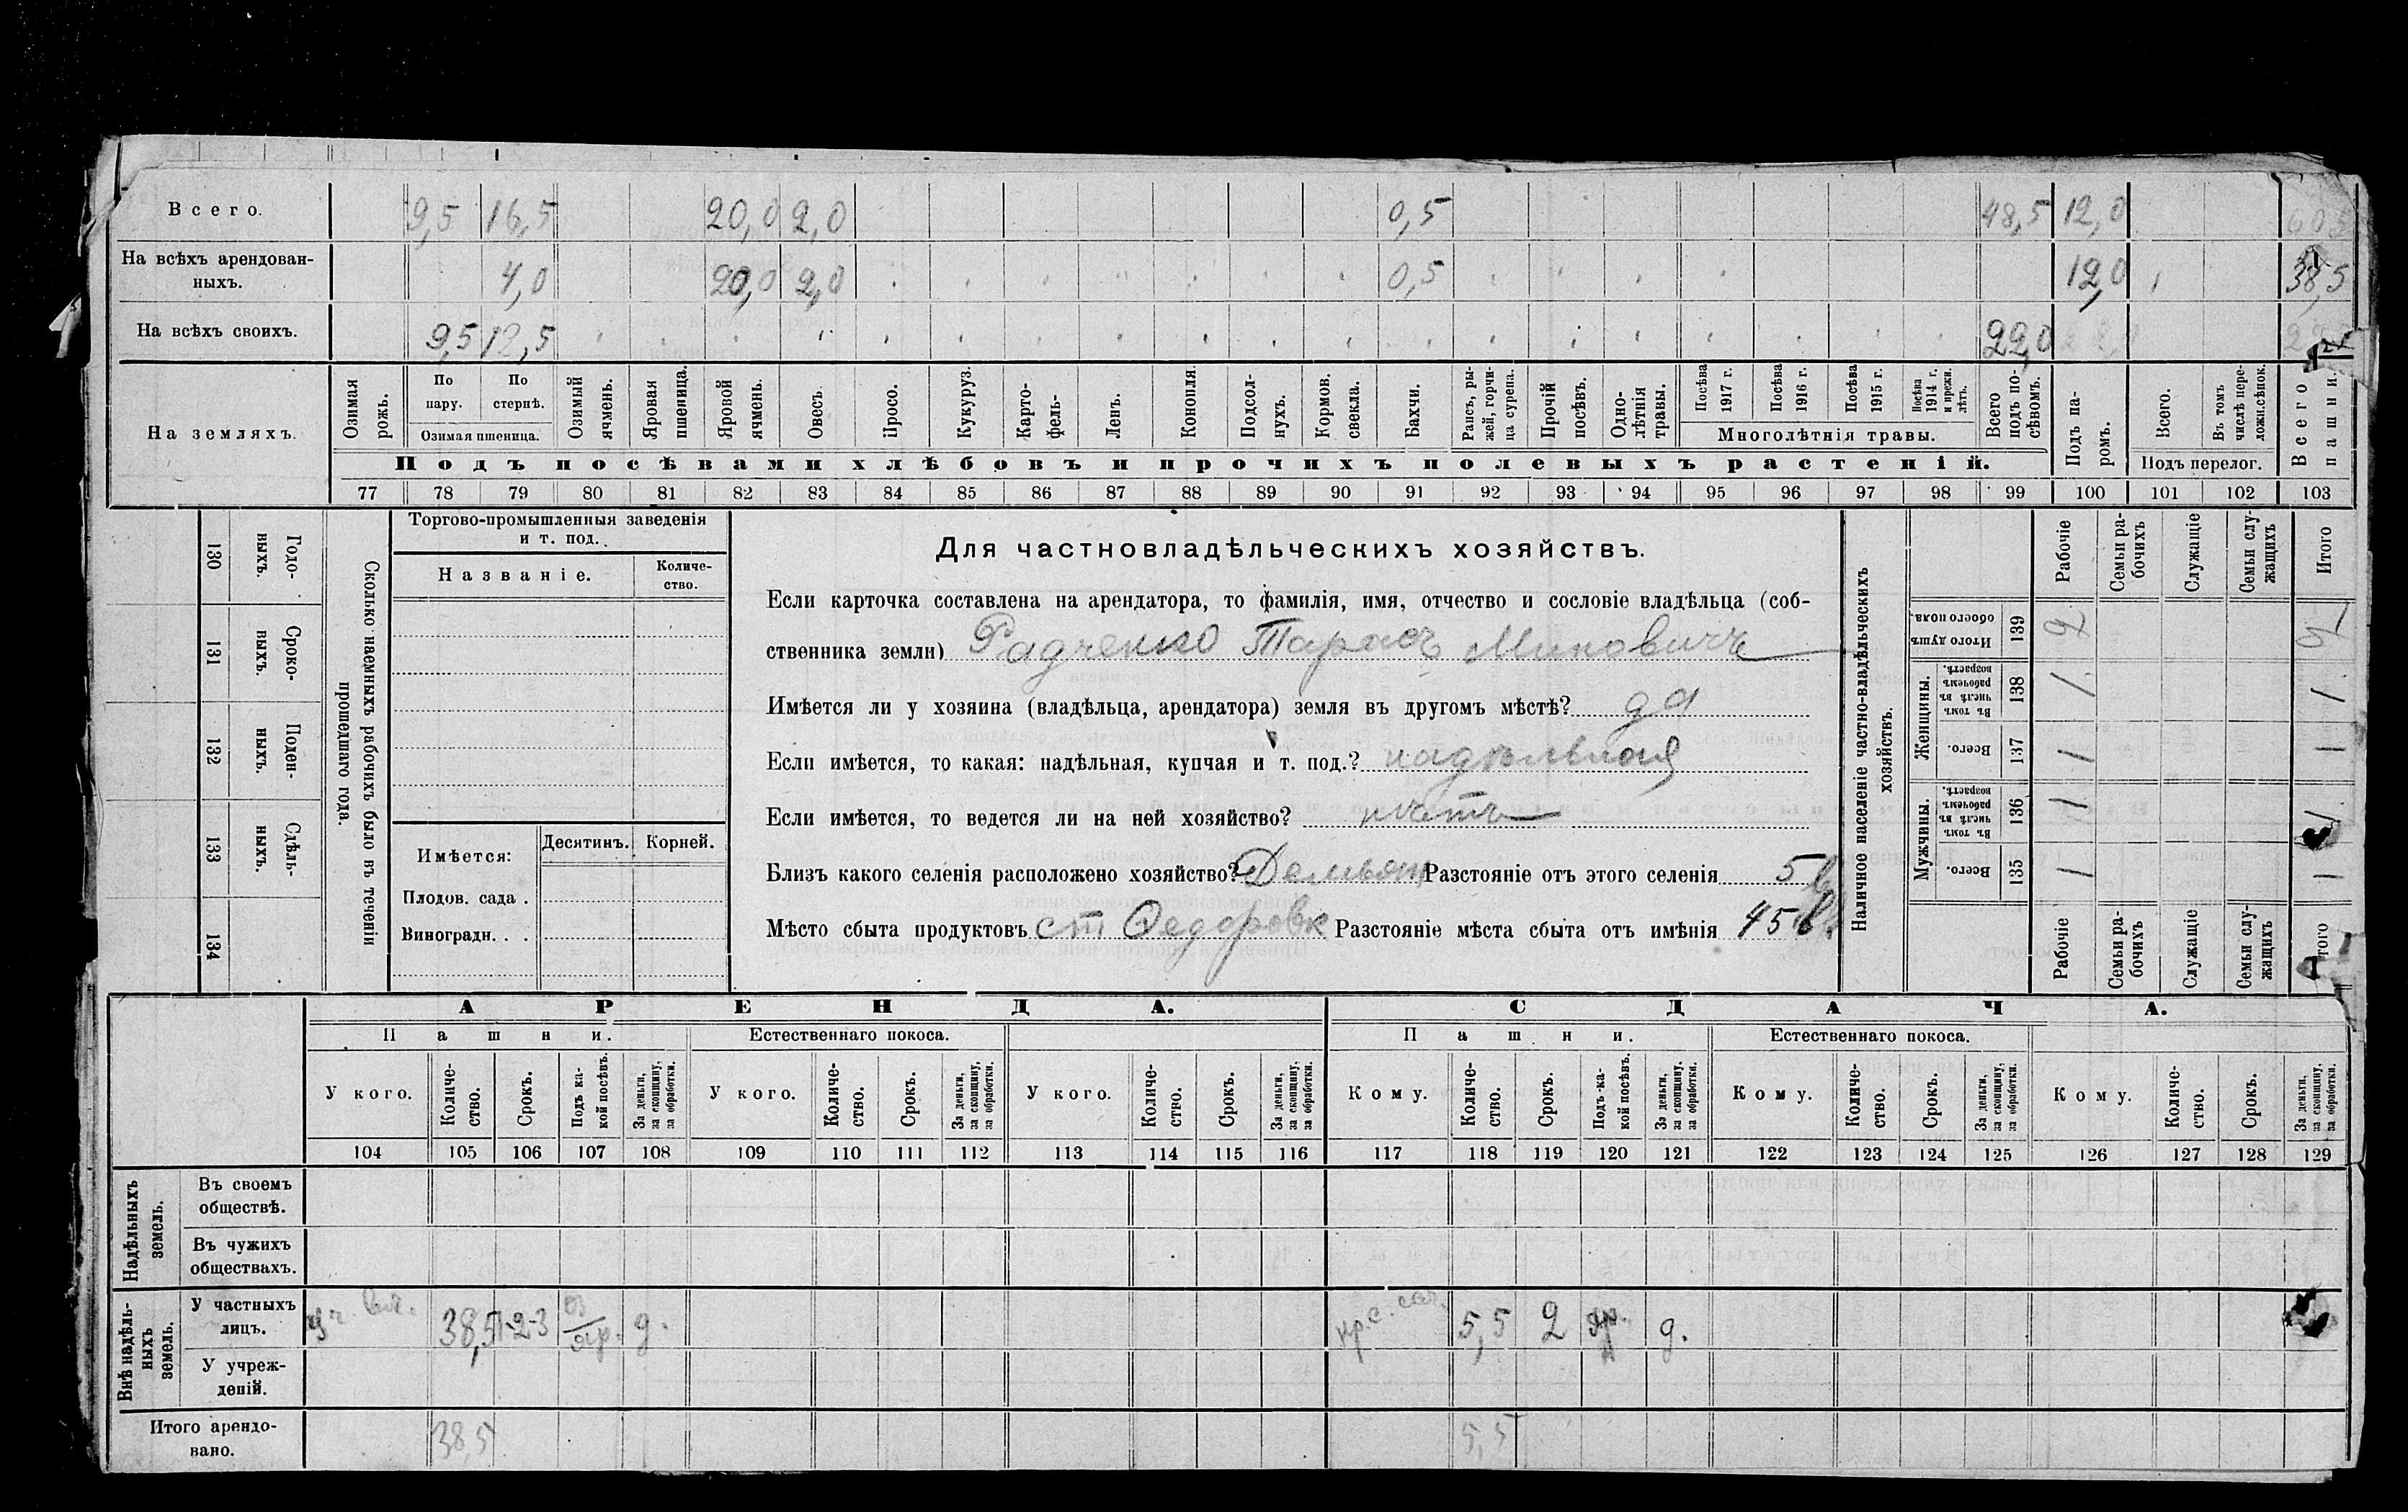 Всего. 9,5 16,5 20,0 2,0 0,5 48,5 12,0 60,5
На всѣхъ арендован-
ныхъ. 4,0 20,0 2,0 0,5 12,0 38,5
На всѣхъ своихъ. 9,5 12,5 22,0
На земляхъ.
Озимая рожь.
По пару.
По стернѣ.
Озимая пшеница.
Озимый ячмень.
Яровая пшеница.
Яровой ячмень.
Овесъ.
Просо.
Кукуруз.
Карто-
фель-
Ленъ.
Конопля.
Подсол-
нухъ.
Кормов. свекла.
Бахчи.
Рапсъ, ры-
жей, горчи-
ца сурепа.
Прочій посѣвъ.
Одно-
лѣтнія травы.
Посѣва 1917 г.
Посѣва 1916 г.
Посѣва 1915 г.
Посѣва 1914 г. и прежн. лѣтъ.
Многолѣтнія травы.
Всего подъ по-
сѣвомъ.
Подъ па-
ромъ.
Всего.
Въ томъ числѣ пере-
ложн.сѣнок.
Подъ перелог.
Всего пашни.
Подъ посѣвами хлѣбовъ и прочихъ полевыхъ растеній.
77 78 79 80 81 82 83 84 85 86 87 88 89 90 91 92 93 94 95 96 97 98 99 100 101 102 103
130 Годо-
ныхъ.
131 Сроко-
ныхъ.
132 Поден-
ныхъ.
133 Сдѣль-
ныхъ.
134
Сколько наемныхъ рабочихъ было въ теченіи
прошедшаго года.
Торгово-промышленныя заведенія
и т. под.
Названіе.
Количе-
ство.
Имѣется: Десятинъ. Корней.
Плодов. сада .
Виноградн. . .
Для частновладѣльческихъ хозяйствъ.
Если карточка составлена на арендатора, то фамилія, имя, отчество и сословіе владѣльца (соб-
ственника земли) Радченко Тарасъ Миновичъ
Имѣется ли у хозяина (владѣльца, арендатора) земля въ другомъ мѣстѣ? да
Если имѣется, то какая: надѣльная, купчая и т. под.? надѣльная
Если имѣется, то ведется ли на ней хозяйство? нѣтъ
Близъ какого селенія расположено хозяйство? Разстояніе отъ этого селенія 5 в.
Мѣсто сбыта продуктовъ ст Федоровк Разстояніе мѣста сбыта отъ имѣнія 45 в.
Наличное населеніе частно-владѣльческихъ
хозяйствъ.
Рабочіе
Семьи ра-
бочихъ
Служащіе
Семьи слу-
жащихъ
Итого
Итого душъ обоего пола. 139 2 2
Женщины.
Въ томъ числѣ въ рабочемъ возрастѣ. 138 1 1
Всего. 137 1 1
Мужчины.
Въ томъ числѣ въ рабочемъ возрастѣ. 136 1 1
Всего. 135 1 1
Рабочіе
Семьи ра-
бочихъ
Служащіе
Семьи слу-
жащихъ
Итого
АРЕНДА. СДАЧА.
Пашни. Естественнаго покоса. Пашни. Естественнаго покоса.
У кого.
Количе-
ство.
Срокъ.
Подъ ка-
кой посѣвъ.
За деньги, за скопщину, за обработки.
У кого.
Количе-
ство.
Срокъ.
За деньги, за скопщину, за обработки.
У кого.
Количе-
ство.
Срокъ.
За деньги, за скопщину, за обработки.
Кому.
Количе-
ство.
Срокъ.
Подъ ка-
кой посѣвъ.
За деньги, за скопщину, за обработки.
Кому.
Количе-
ство.
Срокъ.
За деньги, за скопщину, за обработки.
Кому.
Количе-
ство.
Срокъ.
За деньги, за скопщину, за обработки.
104 105 106 107 108 109 110 111 112 113 114 115 116 117 118 119 120 121 122 123 124 125 126 127 128 129
Надѣльныхъ
земель.
Въ своемъ
обществѣ.
Въ чужихъ
обществахъ.
Внѣ надѣль-
ныхъ
земель.
У частныхъ
лицъ. 38,5 1-2-3 оз/яр. д. 5,5 2 яр. д.
У учреж-
деній.
Итого арендо-
вано. 38,5 5,5